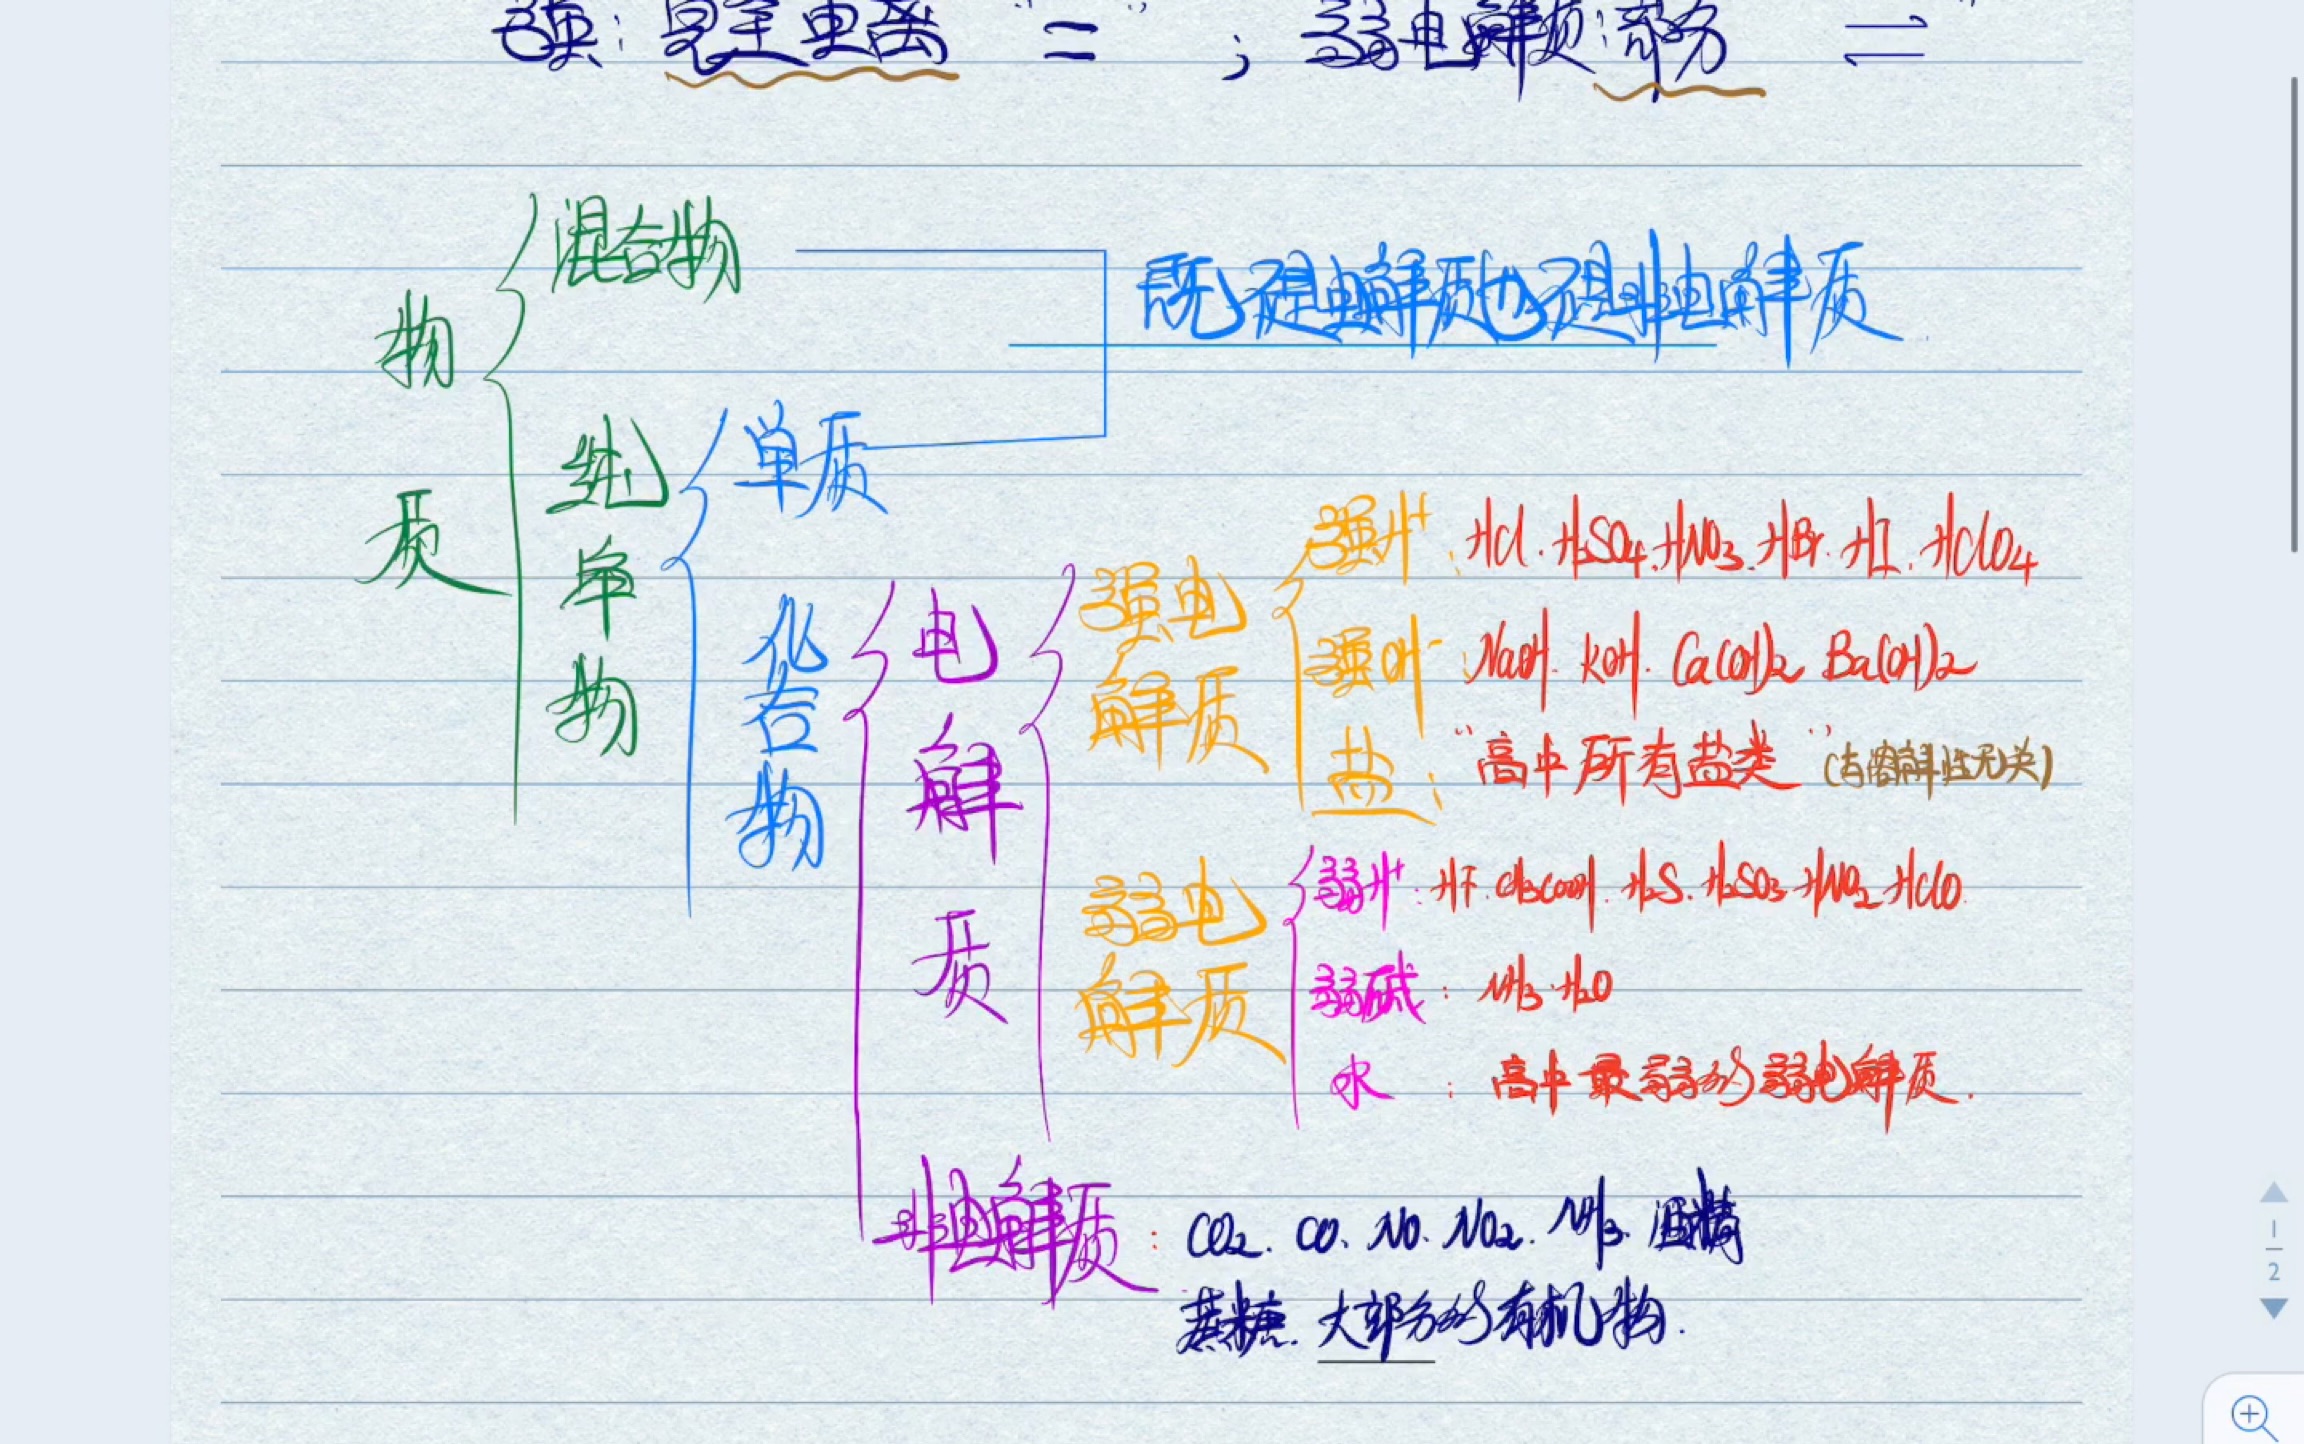 强：完全电离 “=” ；弱电解质：部分 ⇌ “
混合物
既不是电解质也不是非电解质
物质
纯净物
单质
化合物
电解质
强电解质
强H⁺：HCl. H₂SO₄. HNO₃. HBr. HI. HClO₄
强OH⁻：NaOH. KOH. Ca(OH)₂ Ba(OH)₂
盐：“高中所有盐类”（与溶解性无关）
弱电解质
弱H⁺：HF. CH₃COOH. H₂S. H₂SO₃. HNO₂ HClO.
弱碱：NH₃·H₂O
水：高中最弱的弱电解质.
非电解质：CO₂. CO. NO. NO₂. NH₃. 酒精
蔗糖. 大部分的有机物.
1
2